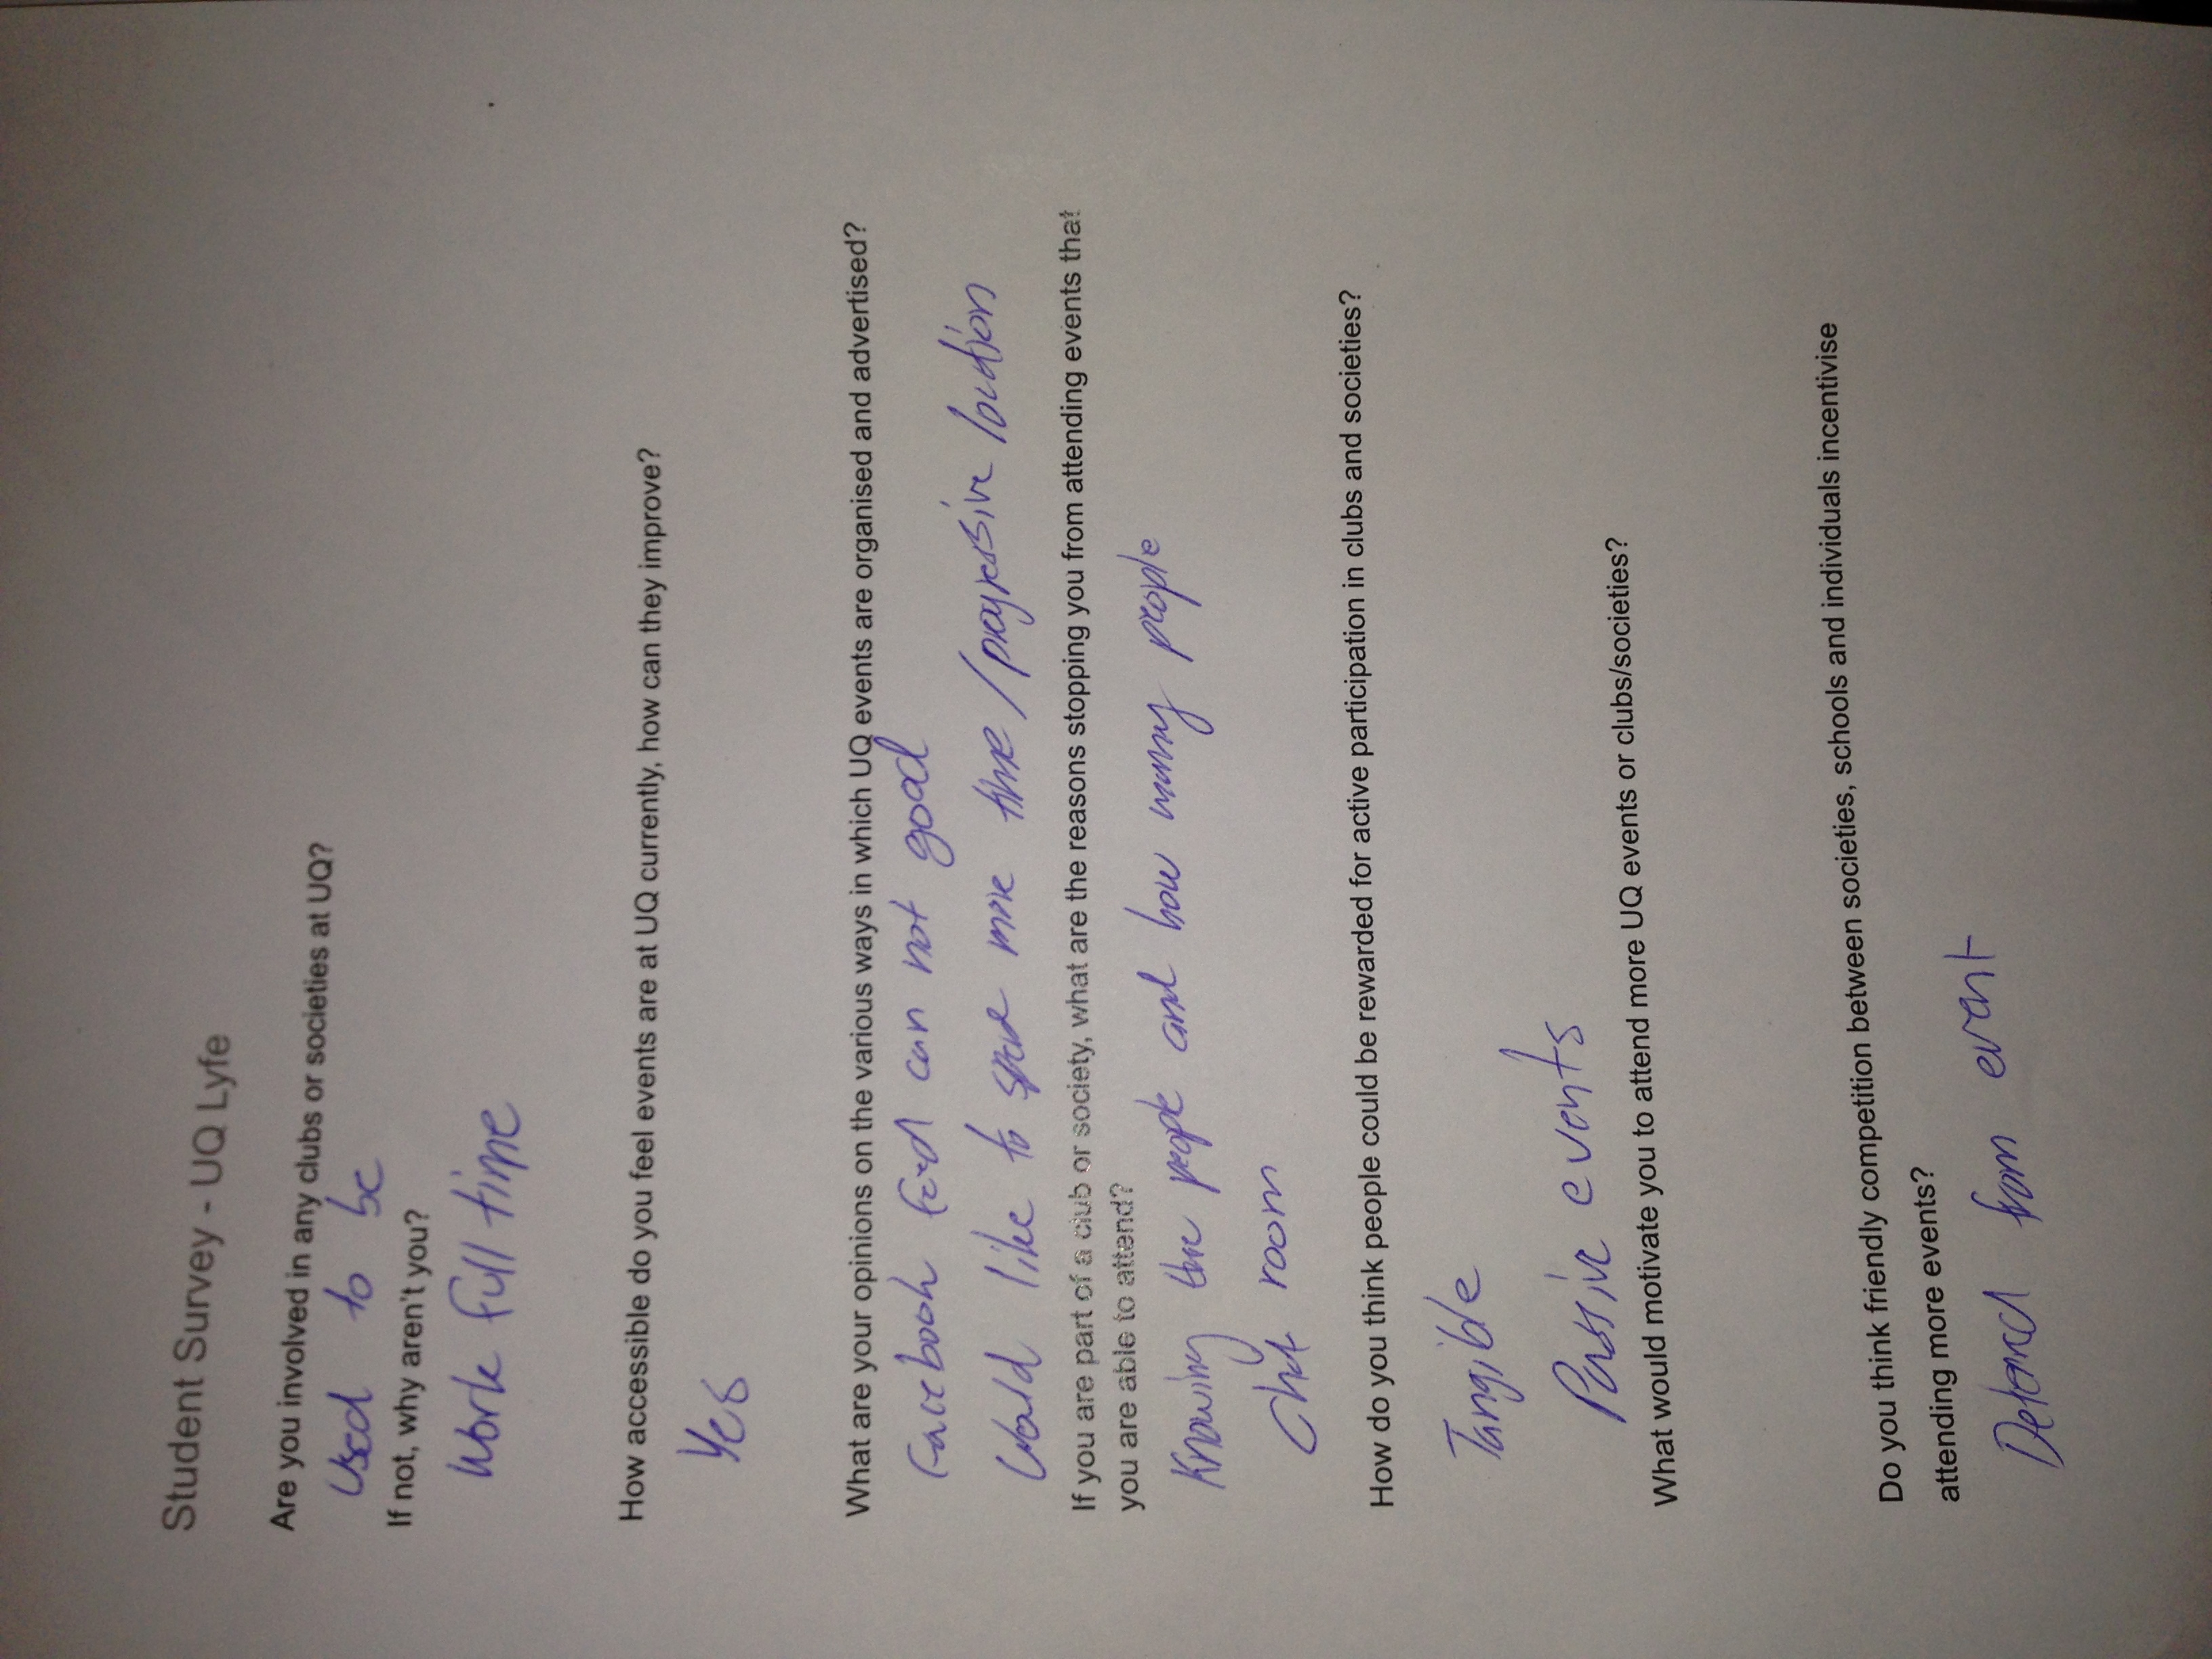 Student Survey - UQ Lyfe
Are you involved in any clubs or societies at UQ?
Used to be
If not, why aren't you?
Work full time
How accessible do you feel events are at UQ currently, how can they improve?
Yes
What are your opinions on the various ways in which UQ events are organised and advertised?
Facebook feed can not good
Would like to see more time / progressive location
If you are part of a club or society, what are the reasons stopping you from attending events that
you are able to attend?
Knowing the people and how many people
Chat room
How do you think people could be rewarded for active participation in clubs and societies?
Tangible
Passive events
What would motivate you to attend more UQ events or clubs/societies?
Do you think friendly competition between societies, schools and individuals incentivise
attending more events?
from event